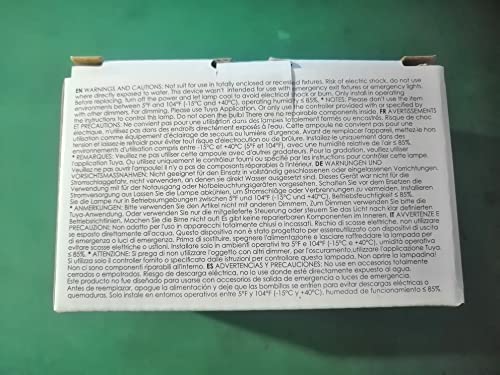 EN WARNINGS AND CAUTIONS: Not suit for use in totally enclosed or recessed fixtures. Risk of electric shock, do not use
where directly exposed to water. This device wasn't intended for use with emergency exit fixtures or emergency lights.
Before replacing, turn off the power and let lamp cool to avoid electrical shock or burn. Only install in operating
environments between 5°F and 104°F (-15°C and +40°C), operating humidity ≤ 85%. * NOTES: Please don't use the item
with other dimmer. For dimming, Please use Tuya Application. Or you may use the controller provided with or specified by
the instructions to control this lamp. Do not open the bulb! There are no reparable components inside. FR AVERTISSEMENTS
ET PRÉCAUTIONS: Ne convient pas pour une utilisation dans des luminaires totalement fermés ou encastrés. Risque de choc
électrique, n'utilisez pas dans des endroits directement exposés à l'eau. Cet appareil n'est pas conçu pour une
utilisation comme équipement d'éclairage de secours ou lumière d'urgence. Avant de remplacer l'appareil, mettez-le hors
tension et laissez-le refroidir pour éviter tout risque d'électrocution ou de brûlure. Installez-le uniquement dans des
environnements compris entre -15°C et +40°C (5°F et 104°F), avec une humidité relative de l'air ≤ 85%.
* REMARQUES: Veuillez ne pas utiliser cette ampoule avec d'autres Pour la gradation, veuillez utiliser
l'application Tuya. Ou vous pouvez utiliser le contrôleur fourni ou spécifié par les instructions pour contrôler cette lampe.
N'ouvrez pas l'ampoule! Il n'y a pas de composants réparables à l'intérieur. DE WARNUNGEN UND
VORSICHTSMASSNAHMEN: Nicht geeignet für den Einsatz in vollständig geschlossenen oder eingelassenen Vorrichtungen.
Stromschlaggefahr, nicht verwenden, an denen es direkt Wasser ausgesetzt sind. Dieses Gerät war nicht für die
Verwendung mit für der Notausgang oder Notbeleuchtungsgeräten vorgesehen. Schalten Sie vor dem Ersetzen die
Stromversorgung aus Lassen Sie die Lampe abkühlen, um Stromschläge oder Verbrennungen zu vermeiden, Installieren
Sie die Lampe nur in Betriebsumgebungen zwischen 5°F und 104°F (-15°C und +40°C), Betriebsfeuchtigkeit ≤ 85%.
* ANMERKUNGEN: Bitte verwenden Sie den Artikel nicht mit anderen Dimmern. Zum Dimmen verwenden Sie bitte die
Tuya-Anwendung. Oder verwenden Sie nur die mitgelieferte Steuerung oder steuern Sie das Licht nach den Angaben der
Betriebstechniken. Machen Sie die Birne nicht auf! Es gibt keine reparierbaren Komponenten im Inneren. IT AVVERTENZE E
PRECAUZIONI: Non adatto per l'uso in apparecchi totalmente chiusi o incassati. Rischio di scossa elettrica, non utilizzare
dove direttamente esposto all'acqua. Questo dispositivo non è stato progettato per essere utilizzato con dispositivi di uscita
di emergenza o luci di emergenza. Prima di sostituire, spegnere l'alimentazione e lasciare raffreddare la lampada per
evitare scosse elettriche o ustioni. Installare solo in ambienti operativi tra 5°F e 104°F (-15°C e +40°C), umidità operativa
≤ 85%. * ATTENZIONE: Si prega di non utilizzare l'oggetto con altri dimmer, per dimmerare, utilizzare l'applicazione Tuya.
Oppure utilizzare il controller fornito o specificato dalle istruzioni per controllare questa lampada. Non aprire la lampadina!
Non ci sono componenti riparabili all'interno. ES ADVERTENCIAS Y PRECAUCIONES: No use en accesorios totalmente
cerrados o empotrados. Riesgo de descarga eléctrica, no lo use donde esté directamente expuesto al agua.
Este producto no fue diseñado para usarse con accesorios de salida de emergencia o luces de emergencia.
Antes de reemplazar, apague la alimentación y deje que las bombillas se enfríen para evitar descargas eléctricas o
quemaduras. Solo instale en entornos operativos entre 5°F y 104°F (-15°C y +40°C), humedad de funcionamiento ≤ 85%.